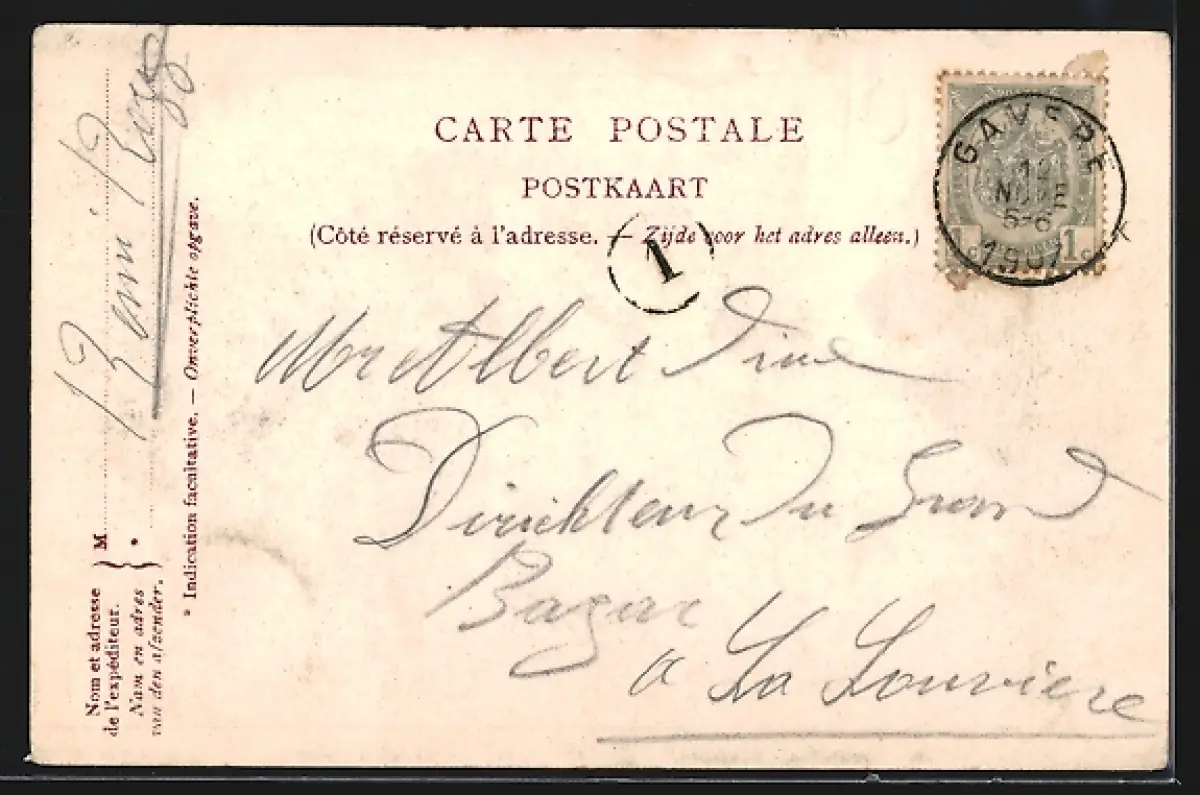 CARTE POSTALE
POSTKAART
(Côté réservé à l'adresse. — Zijde voor het adres alleen.)
1
GAVERE
12
NOVE
5-6
1907
1 1
Mr Albert
Dirickteur Du Grand
Bazar
a La Louviere
Nom et adresse
de l'expéditeur.
Nam en adres
van den afzender.
M
*
* Indication facultative. — Onverplichte opgave.